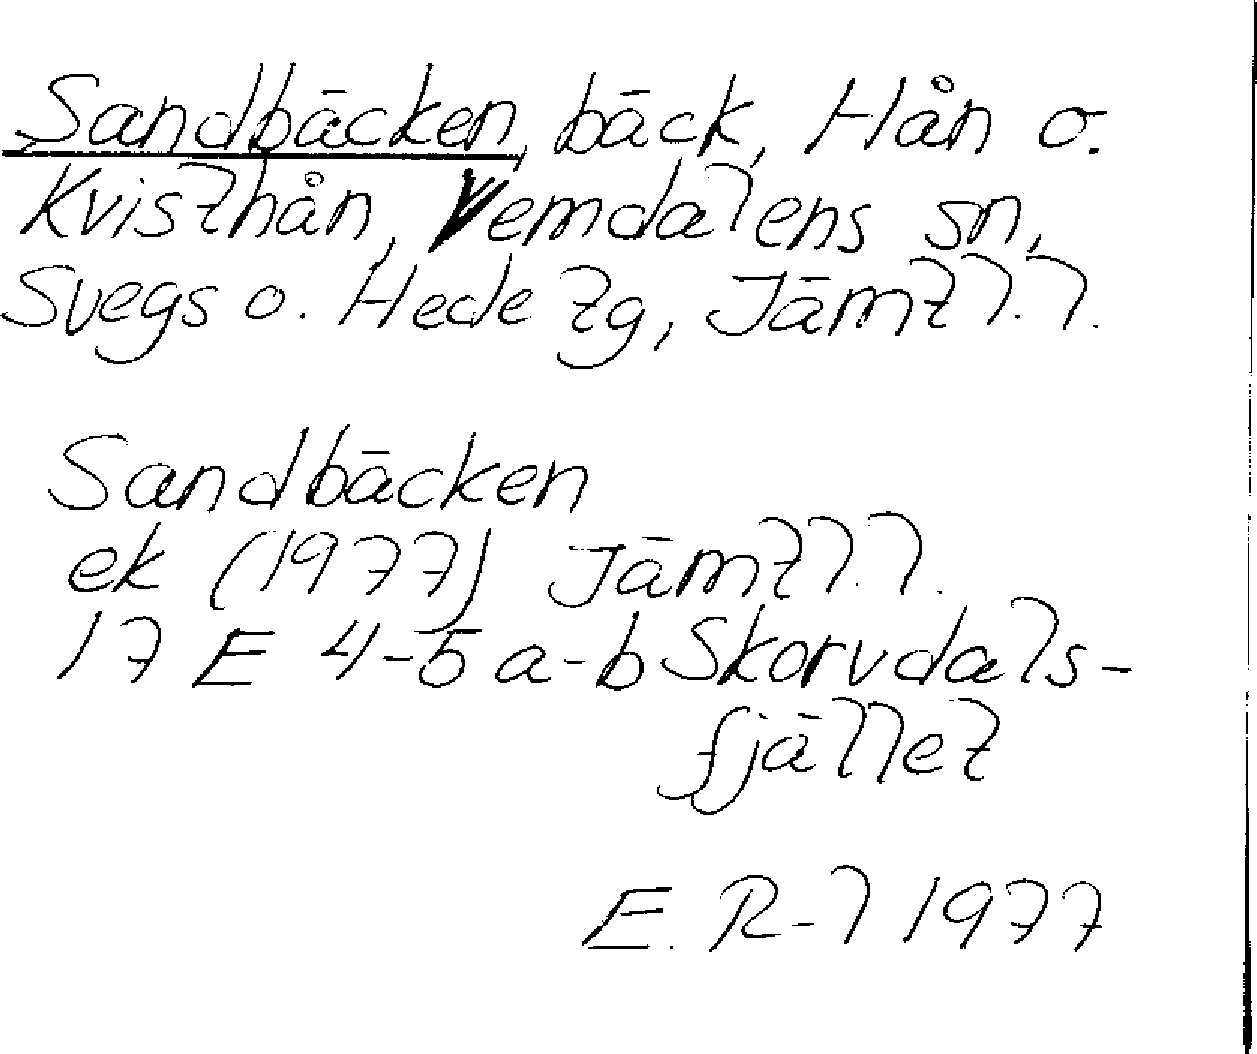 Sandbäcken, bäck, Hån o.
Kvisthån, Vemdalens sn,
Svegs o. Hede tg, Jämtl. l.
Sandbäcken
ek (1977) Jämtl. l.
17 E 4-5 a-b Skorvdals-
fjället
E. R-l 1977